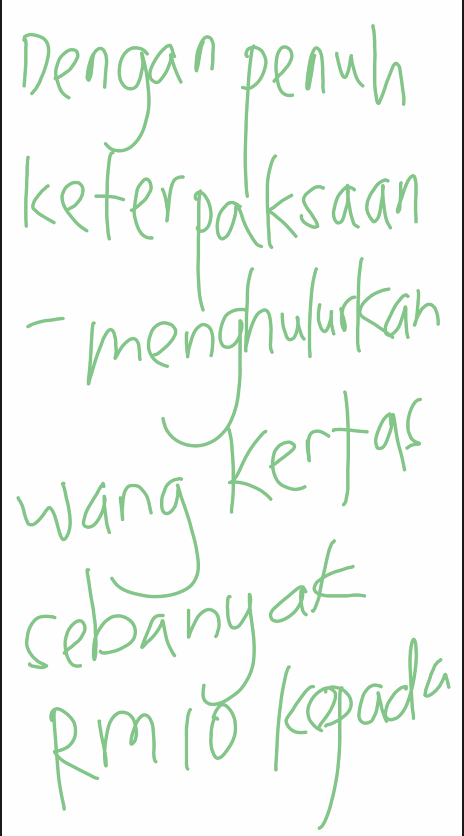 Dengan penuh
keterpaksaan
- menghulurkan
wang kertas
sebanyak
RM10 kepada